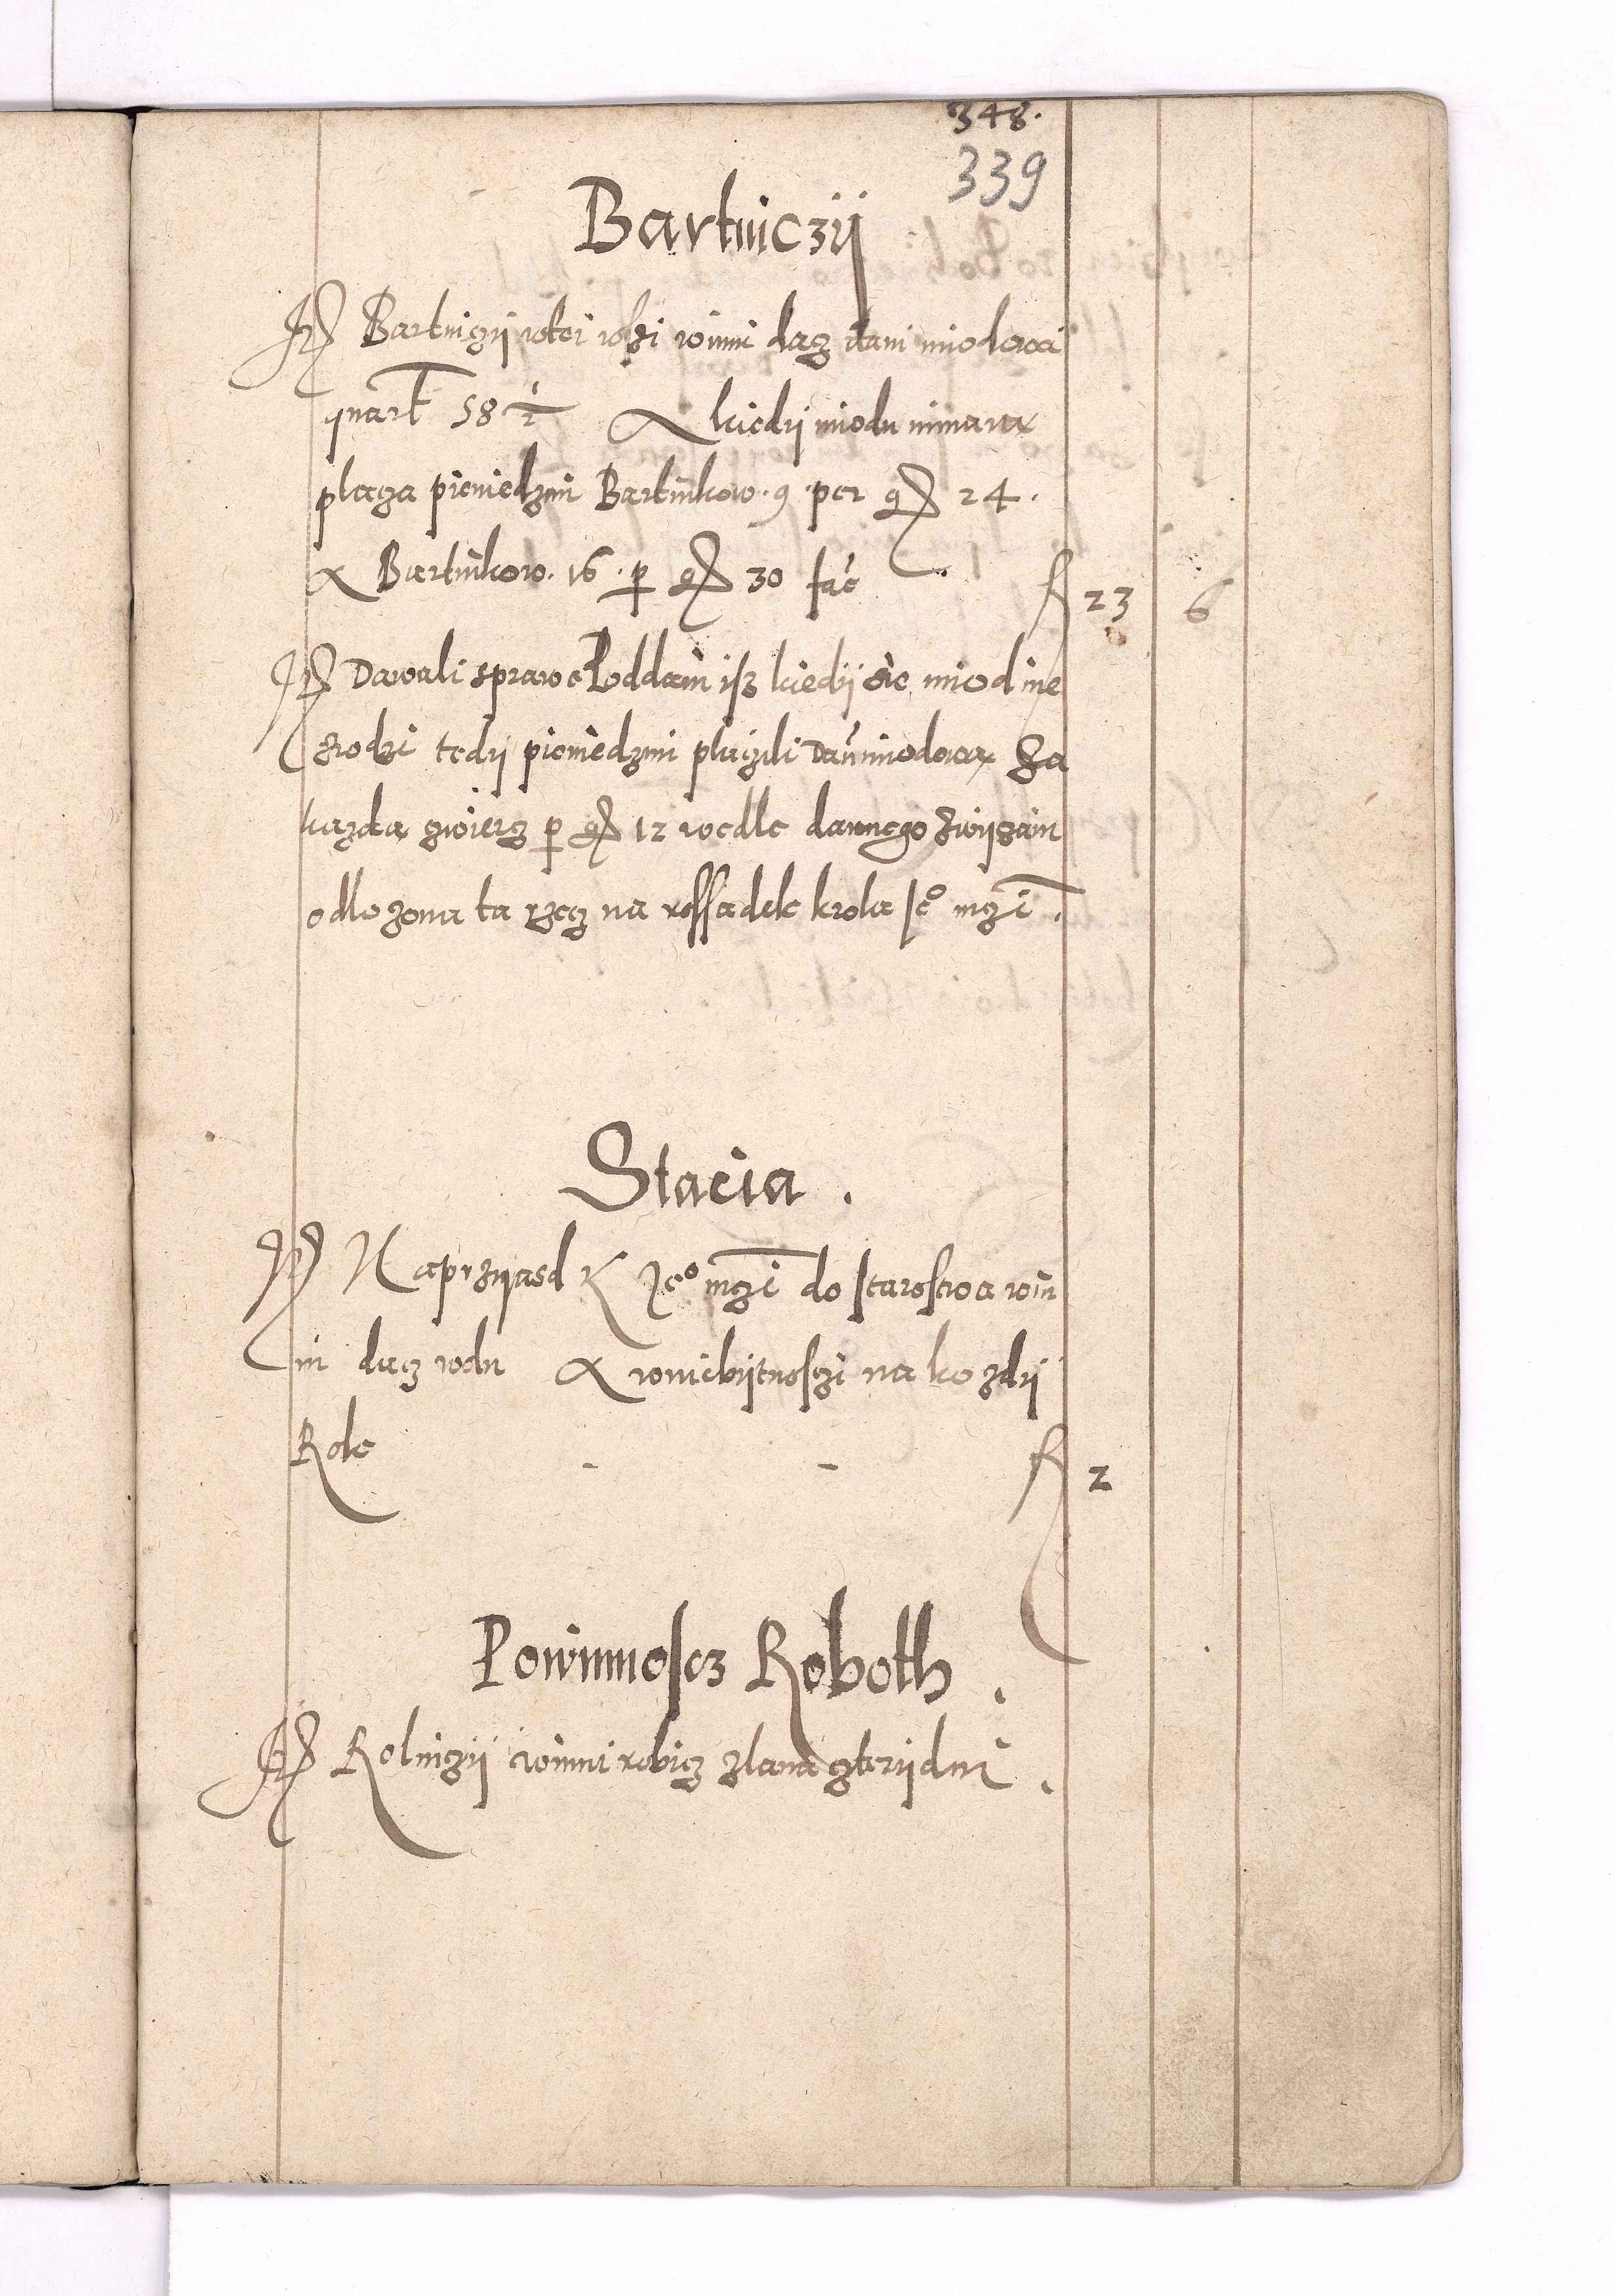 348.
339
Bartniczij
Jtem Bartniczij wtei wszi winni dacz dani miodowei
quart 58 1/2 A kiedij miodu niimaia
placza pieniedzmi Bartnikow . 9 . per gr 24 .
A Bartnikow . 16 . p gr 30 fac̄ fl 23 6
Jtem Dawali sprawe Poddani isz kiedij sie miod nie
zrodzi tedij pieniedzmi placzili Dań miodowa za
kazda cwiercz p gr 12 wedle dawnego zwijczaiu
odlozona ta rzecz na rossadek krola Jeo mczi .
Stacia .
Jtem Na przijasd K Jeo mczi do starostwa win
ni dacz wolu A wniebijtnosczi na kozdij
Role - - fl 2
Powinnoscz Roboth .
Jtem Rolniczij winni robicz zlana czterij dni .